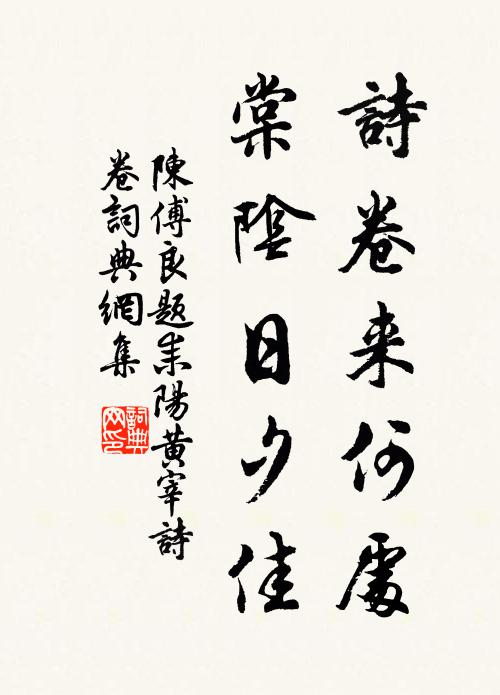 詩卷来何處
棠陰日夕佳
陳傅良題耒陽黄宰詩
卷詞典網集
詞典
网印